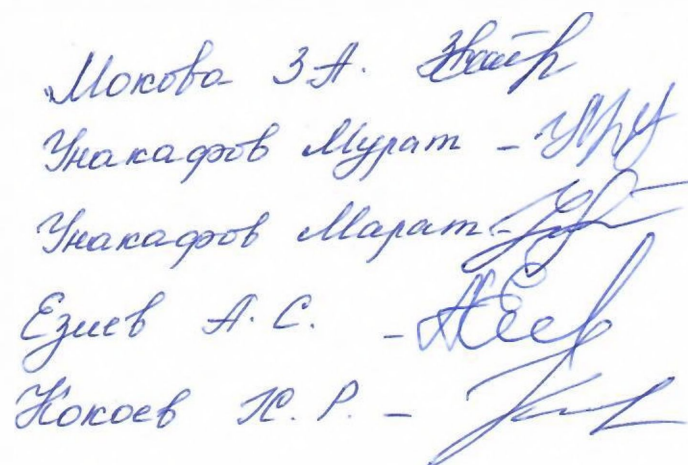 Мокова З.А.
Унакафов Мурат -
Унакафов Марат -
Езиев А.С. -
Кокоев Х.Р. -